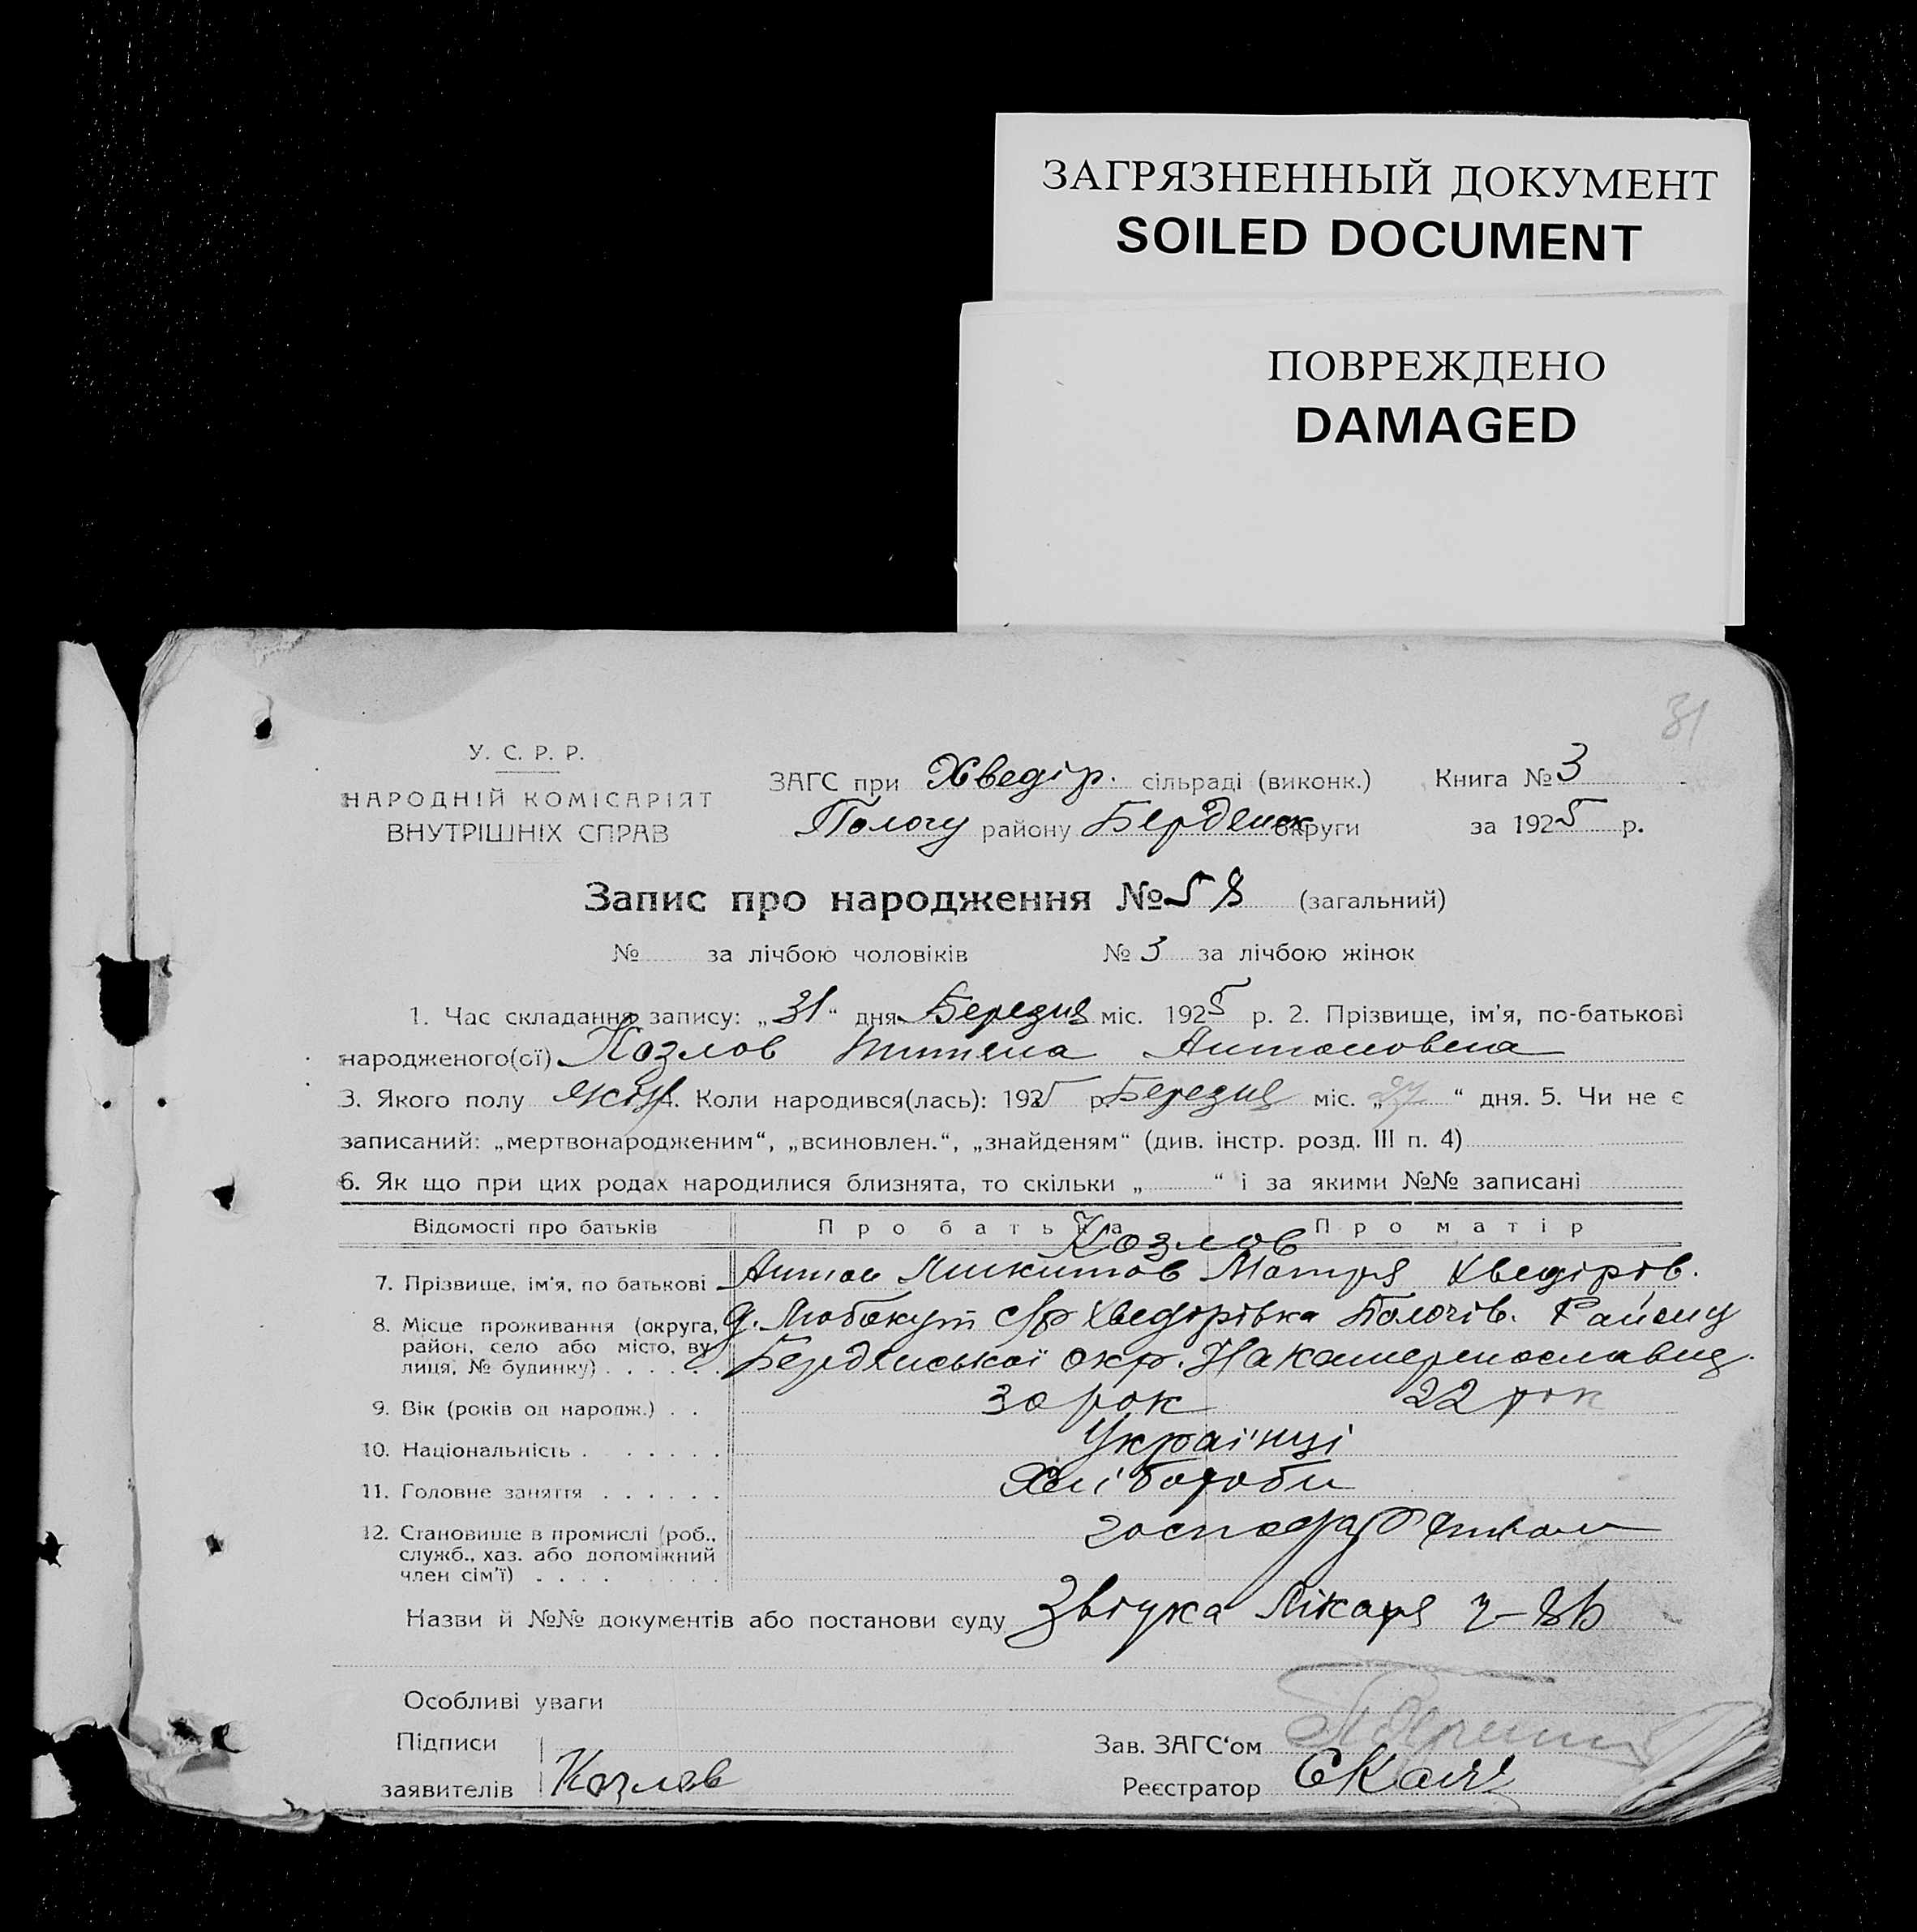 ЗАГРЯЗНЕННЫЙ ДОКУМЕНТ
SOILED DOCUMENT
ПОВРЕЖДЕНО
DAMAGED
31
У. С. Р. Р.
НАРОДНІЙ КОМІСАРІЯТ
ВНУТРІШНІХ СПРАВ
ЗАГС при Хведір. сільраді (виконк.) Книга № 3
Пологу району Бердянск округи за 1925 р.
Запис про народження № 58 (загальний)
№ за лічбою чоловіків № 3 за лічбою жінок
1. Час складання запису: „31“ дня Березня міс. 1925 р. 2. Прізвище, ім'я, по-батькові
народженого(ої) Козлов Антоновна
3. Якого полу жін 4. Коли народився(лась): 1925 р. Березня міс. „27“ дня. 5. Чи не є
записаний: „мертвонародженим“, „всиновлен.“, „знайденям“ (див. інстр. розд. III п. 4)
6. Як що при цих родах народилися близнята, то скільки „ “ і за якими №№ записані
Відомості про батьків Про батька Про матір
Козлов
7. Прізвище, ім'я, по батькові Антон Микитов Мотря Хведорів.
8. Місце проживання (округа, район, село або місто, вулиця, № будинку) Хведорівка Пологів. Району
Бердянської окр. На Катеринославщ.
9. Вік (років од народж.) 30 рок 22 рок
10. Національність Українці
11. Головне заняття Хлібороби
12. Становище в промислі (роб., служб., хаз. або допоміжний член сім'ї)
Назви й №№ документів або постанови суду Лікаря
Особливі уваги
Підписи заявителів Козлов
Зав. ЗАГС'ом
Реєстратор